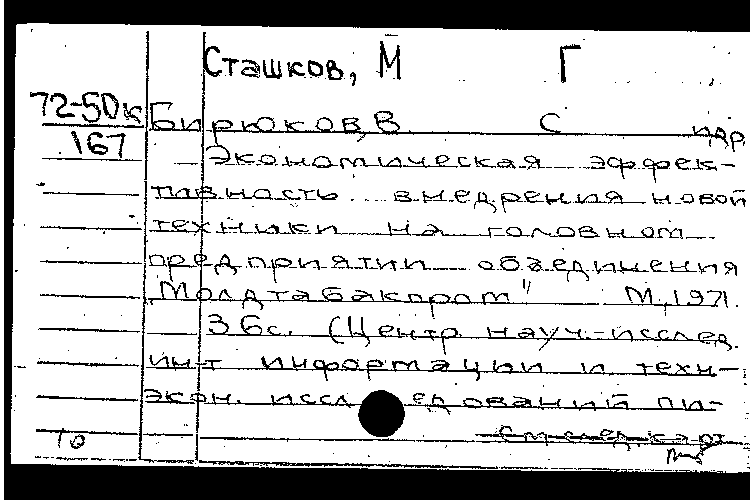 Сташков, М Г
72-50к Бирюков, В. С и др.
167 Экономическая эффек-
тивность внедрения новой
техники на головном
предприятии объединения
„Молдтабакпром" М., 1971.
36с. (Центр науч.-исслед.
ин-т информации и техн-
экон. исследований пи-
10 См след. карт